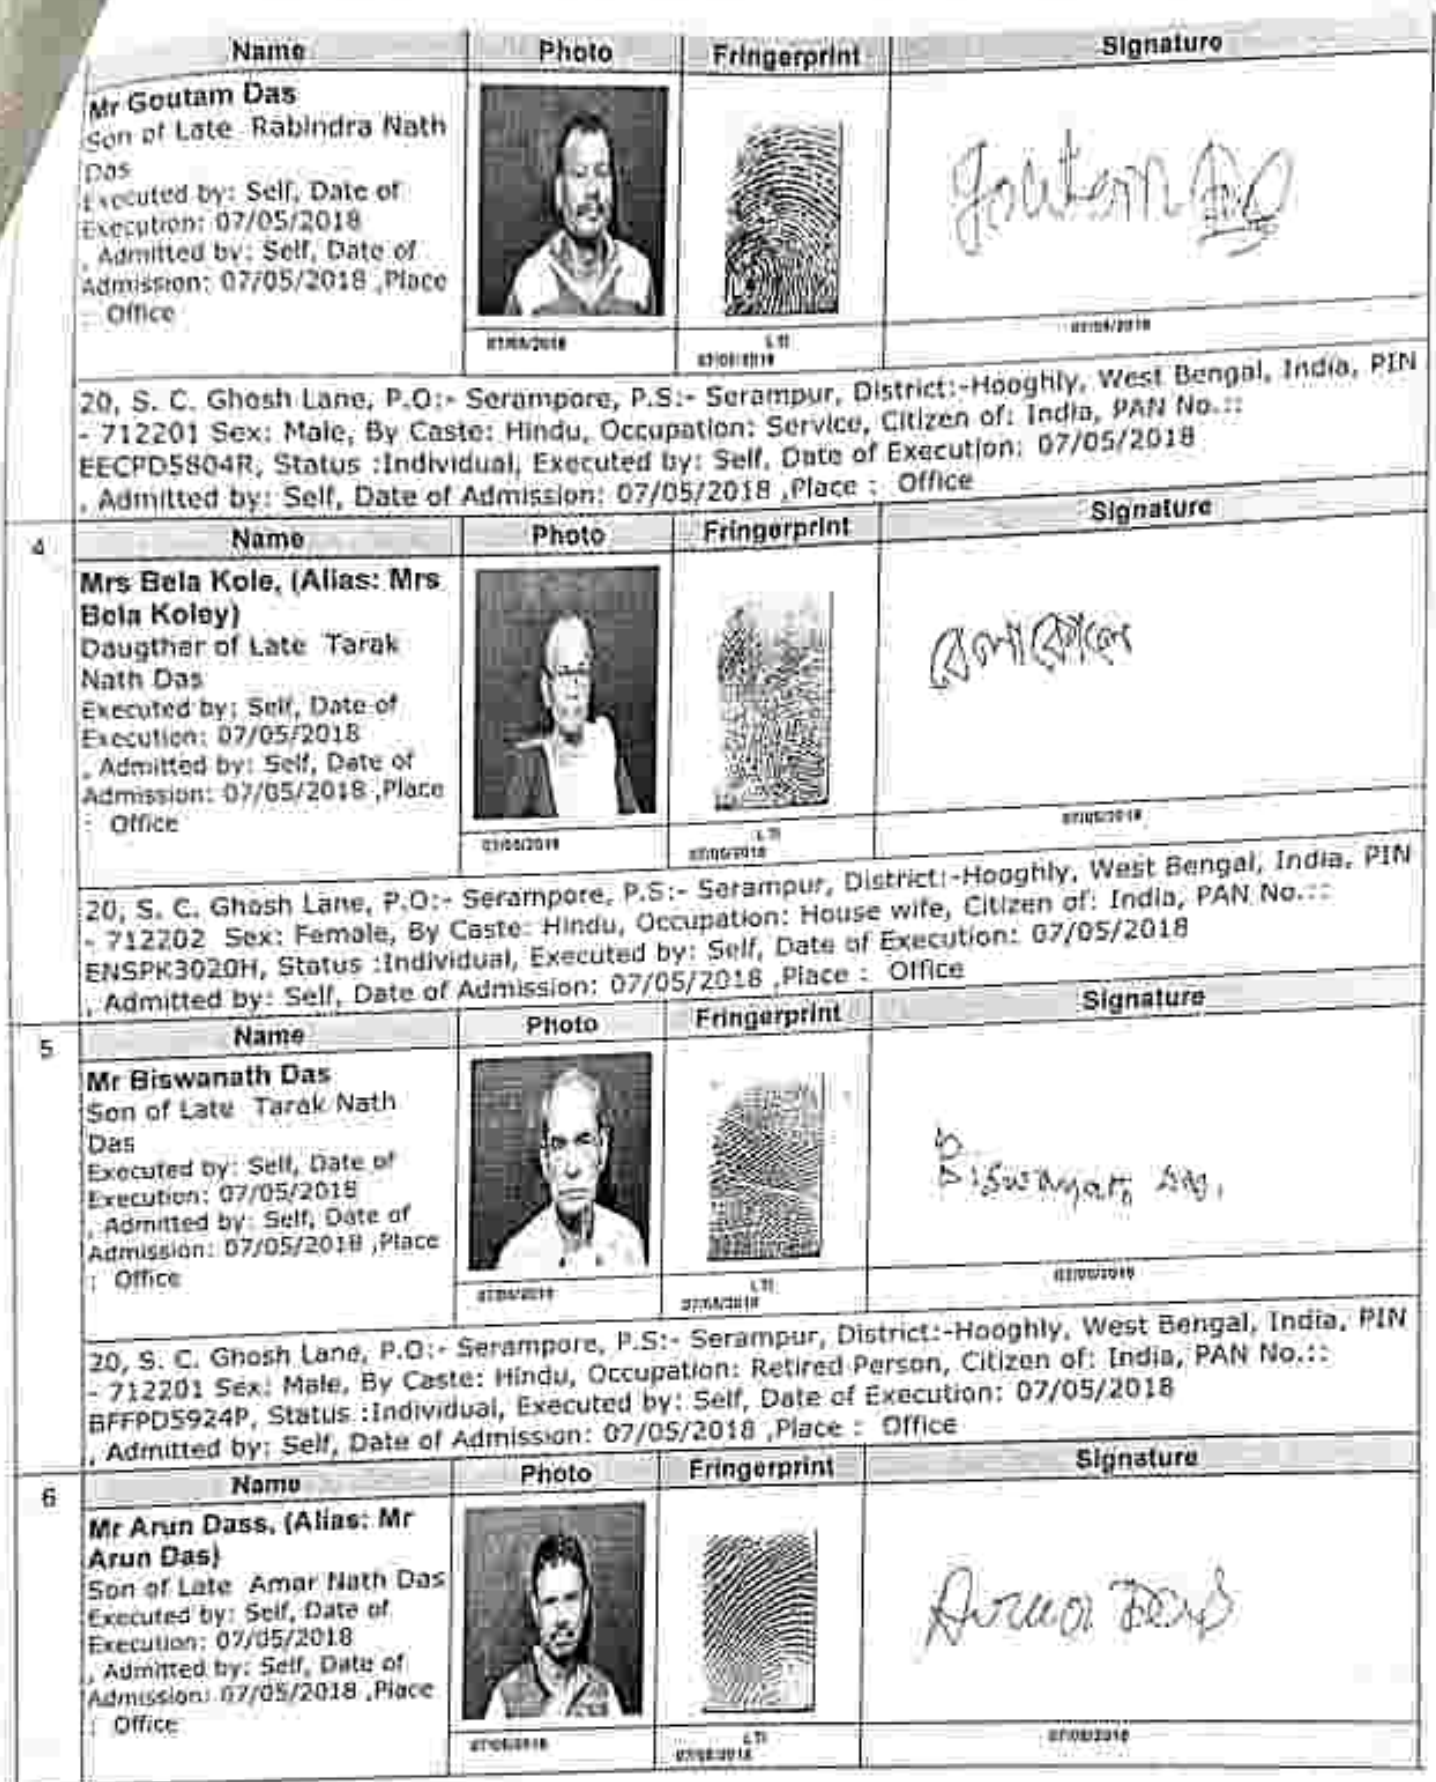 Name Photo Fringerprint Signature
Mr Goutam Das
Son of Late Rabindra Nath
Das
Executed by: Self, Date of
Execution: 07/05/2018
, Admitted by: Self, Date of
Admission: 07/05/2018 ,Place
: Office
Goutam Das
07/05/2018 LTI 07/05/2018
07/05/2018
20, S. C. Ghosh Lane, P.O:- Serampore, P.S:- Serampur, District:-Hooghly, West Bengal, India, PIN
- 712201 Sex: Male, By Caste: Hindu, Occupation: Service, Citizen of: India, PAN No.::
EECPD5804R, Status :Individual, Executed by: Self, Date of Execution: 07/05/2018
, Admitted by: Self, Date of Admission: 07/05/2018 ,Place : Office
4 Name Photo Fringerprint Signature
Mrs Bela Kole, (Alias: Mrs
Bela Koley)
Daugther of Late Tarak
Nath Das
Executed by: Self, Date of
Execution: 07/05/2018
, Admitted by: Self, Date of
Admission: 07/05/2018 ,Place
: Office
বেলা কোলে
07/05/2018 LTI 07/05/2018
07/05/2018
20, S. C. Ghosh Lane, P.O:- Serampore, P.S:- Serampur, District:-Hooghly, West Bengal, India, PIN
- 712202 Sex: Female, By Caste: Hindu, Occupation: House wife, Citizen of: India, PAN No.::
ENSPK3020H, Status :Individual, Executed by: Self, Date of Execution: 07/05/2018
, Admitted by: Self, Date of Admission: 07/05/2018 ,Place : Office
5 Name Photo Fringerprint Signature
Mr Biswanath Das
Son of Late Tarak Nath
Das
Executed by: Self, Date of
Execution: 07/05/2018
, Admitted by: Self, Date of
Admission: 07/05/2018 ,Place
: Office
Biswanath Das.
07/05/2018 LTI 07/05/2018
07/05/2018
20, S. C. Ghosh Lane, P.O:- Serampore, P.S:- Serampur, District:-Hooghly, West Bengal, India, PIN
- 712201 Sex: Male, By Caste: Hindu, Occupation: Retired Person, Citizen of: India, PAN No.::
BFFPD5924P, Status :Individual, Executed by: Self, Date of Execution: 07/05/2018
, Admitted by: Self, Date of Admission: 07/05/2018 ,Place : Office
6 Name Photo Fringerprint Signature
Mr Arun Dass, (Alias: Mr
Arun Das)
Son of Late Amar Nath Das
Executed by: Self, Date of
Execution: 07/05/2018
, Admitted by: Self, Date of
Admission: 07/05/2018 ,Place
: Office
07/05/2018 LTI 07/05/2018
07/05/2018